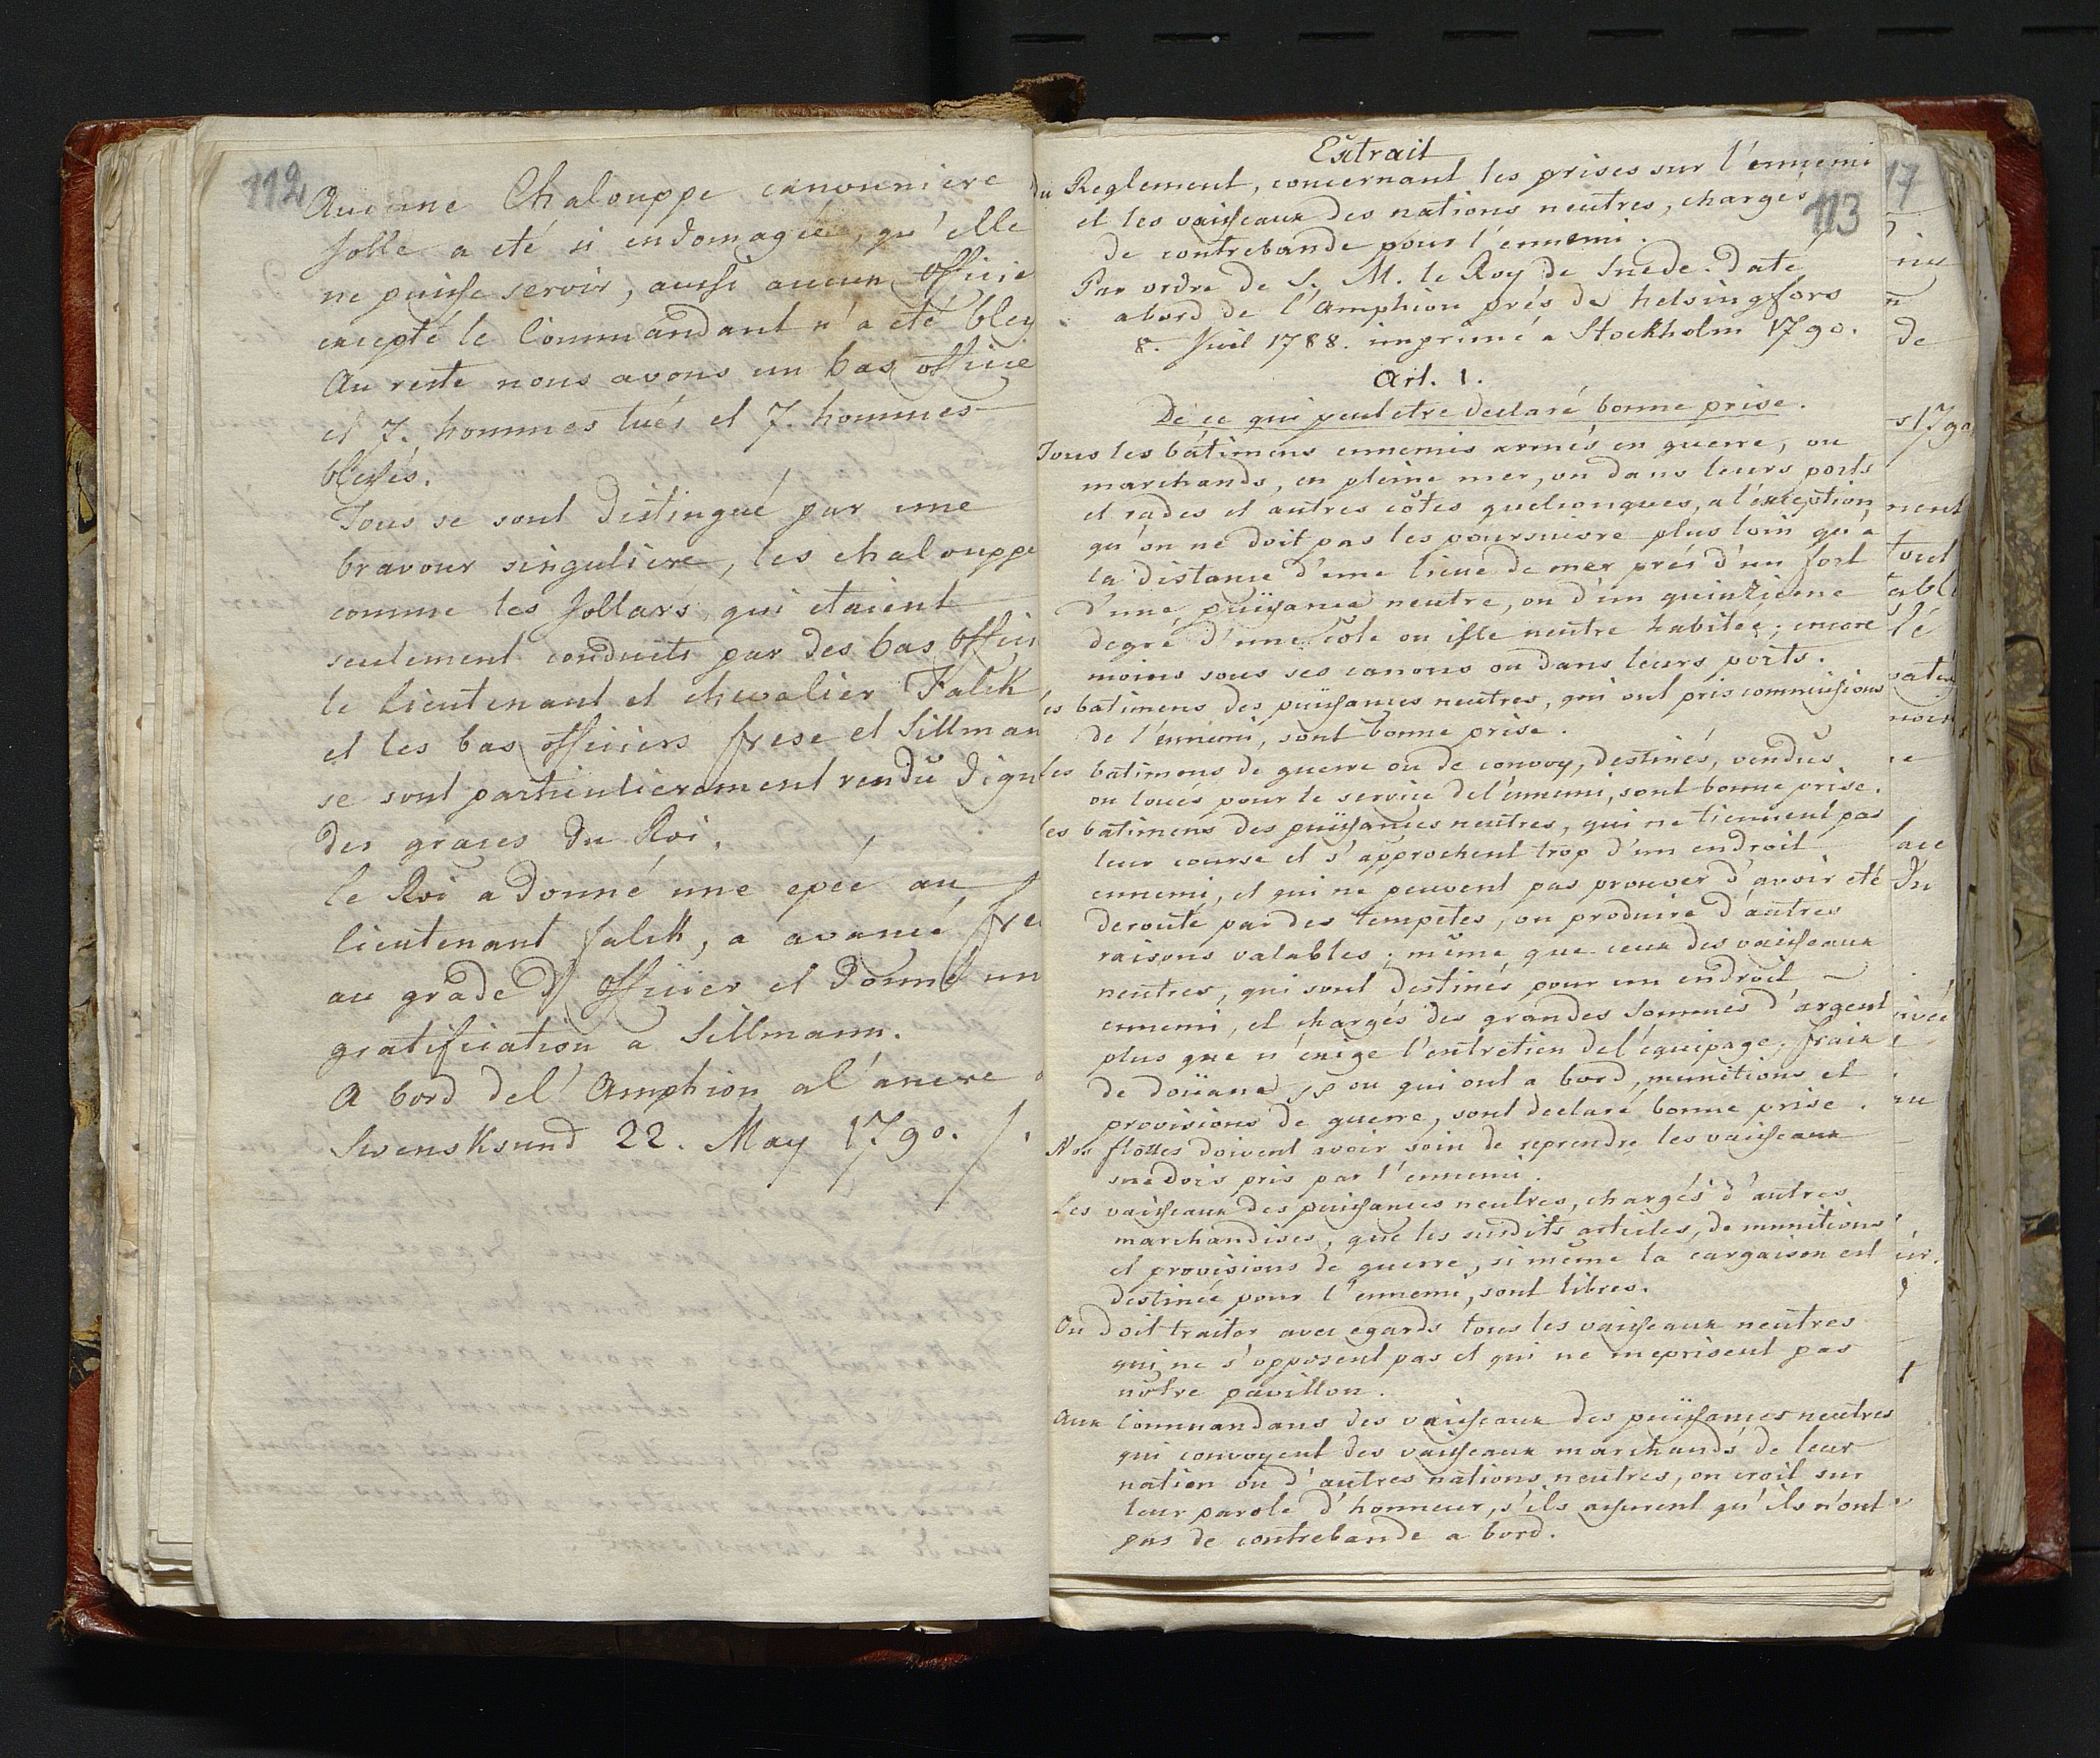 112
Aucune Chalouppe canonniere
Jolle a eté si endomagée, qu'elle
ne puisse servir, aussi aucun Officie
excepté le Commandant n'a eté bles
Au reste nous avons un bas officie
et 7. hommes tués et 7. hommes
blessés.
Tous se sont distingué par une
bravour singuliere, les chalouppe
comme les Jollars qui etaient
seulement conduits par des bas offici
le Lieutenant et chevalier Falck
et les bas officiers frese et Sillman
se sont particulierement rendu dign
des graces du Roi.
le Roi a donné une epée au
lieutenant falck, a avancé fre
au grade d'officier et donné un
gratification a Sillmann.
A bord del'Amphion a l'ancre
Svensksund 22. May 1790.
113
Extrait
du Reglement, concernant les prises sur l'ennemi
et les vaisseaux des nations neutres, chargés
de contrebande pour l'ennemi.
Par ordre de S. M. le Roy de Suede. daté
abord de l'Amphion prés de helsingfors
8. Juil 1788. imprimé a Stockholm 1790.
Art. 1.
De ce qui peut etre declaré bonne prise.
Tous les bâtimens ennemis armés en guerre, ou
marchands, en pleine mer, ou dans leurs ports
et rades et autres côtes quelconques, a l'exception
qu'on ne doit pas les poursuivre plus loin qu'a
la distance d'une lieue de mer prés d'un fort
d'une puissance neutre, ou d'un quinzieme
degré d'une côte ou isle neutre habitée; encore
moins sous ses canons ou dans leurs ports.
les batimens des puissances neutres, qui ont pris commissions
de l'ennemi, sont bonne prise.
les batimens de guerre ou de convoy, destinés, vendus
ou loués pour le service de l'ennemi, sont bonne prise.
les batimens des puissances neutres, qui ne tiennent pas
leur course et s'approchent trop d'un endroit
ennemi, et qui ne peuvent pas prouver d'avoir eté
derouté par des tempetes, ou produire d'autres
raisons valables; même que ceux des vaisseaux
neutres, qui sont destinés pour un endroit
ennemi, et chargés des grandes sommes d'argent
plus que n'exige l'entretien del'equipage, fraix
de doüane pp ou qui ont a bord, munitions et
provisions de guerre, sont declaré bonne prise.
Nos flottes doivent avoir soin de reprendre les vaisseaux
suedois pris par l'ennemi.
Les vaisseaux des puissances neutres, chargés d'autres
marchandises, que les susdits articles, de munitions
et provisions de guerre, si même la cargaison est
destinée pour l'ennemi, sont libres.
On doit traiter avec egards tous les vaisseaux neutres
qui ne s'opposent pas et qui ne meprisent pas
nôtre pavillon.
Aux Commandans des vaisseaux des puissances neutres
qui convoyent des vaisseaux marchands de leur
nation ou d'autres nations neutres, on croit sur
leur parole d'honneur, s'ils assurent qu'ils n'ont
pas de contrebande a bord.
17
de
1790
nent
tout